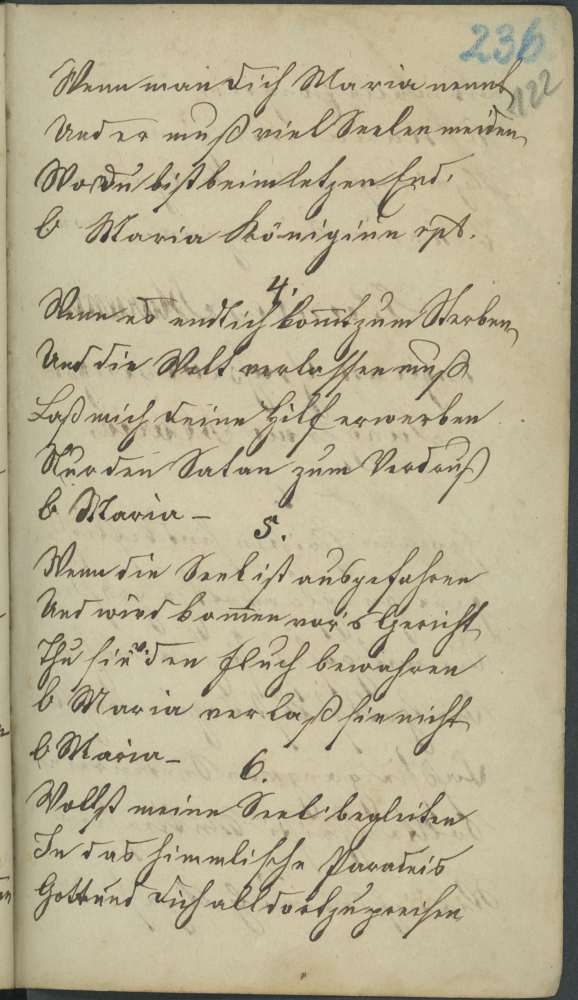 236
122
Wenn man dich Maria nennt
Und er muß viel Seelen meiden
Wo du bist beim letzen End.
O Maria Königinn rpt.
4.
Wenn es endlich kom̅t zum Sterben,
Und die Welt verlassen muß
Laß mich deine Hilf erwerben
Nur den Satan zum Verdruß
O Maria –
5.
Wenn die Seel ist ausgefahren
Und wird kom̅en vor's Gericht
Thu sie v. den Fluch bewahren
O Maria verlaß sie nicht
O Maria –
6.
Wollst meine Seel begleiten
In das himmlische Paradeis
Gott und dich alldort zu preisen